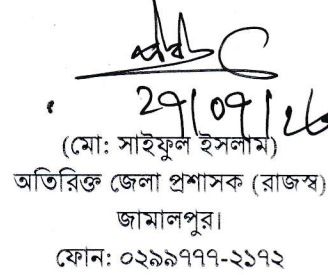 (মো: সাইফুল ইসলাম)
অতিরিক্ত জেলা প্রশাসক (রাজস্ব)
জামালপুর।
ফোন: ০২৯৯৭৭৭-২১৭২